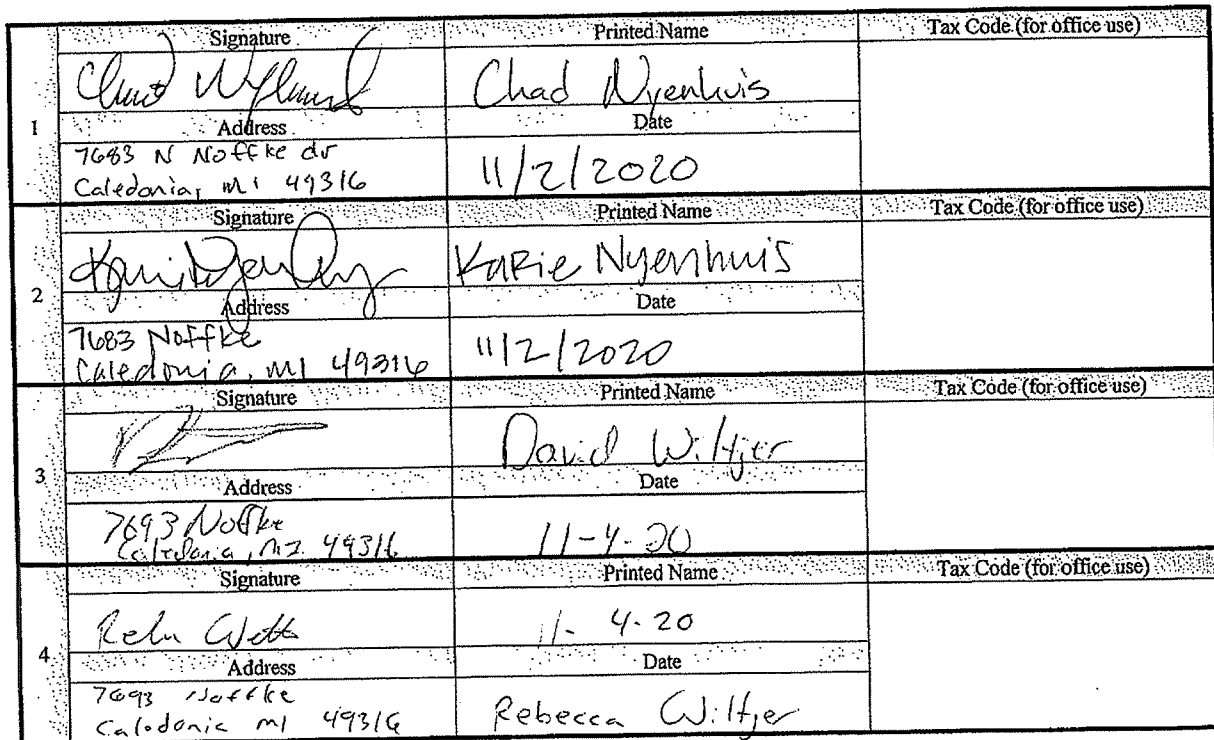 Signature Printed Name Tax Code (for office use)
Chad Nyenhuis
1
Address Date
7683 N Noffke dr
Caledonia, MI 49316
11/2/2020
Signature Printed Name Tax Code (for office use)
Karie Nyenhuis KaRie Nyenhuis
2
Address Date
7683 Noffke
Caledonia, MI 49316
11/2/2020
Signature Printed Name Tax Code (for office use)
David Wiltjer
3
Address Date
7693 Noffke
Caledonia, MI. 49316
11-4-20
Signature Printed Name Tax Code (for office use)
11- 4-20
4
Address Date
7693 Noffke
Caledonia MI 49316
Rebecca Wiltjer